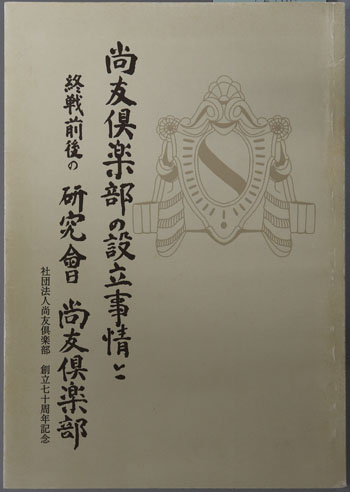 尚友倶楽部の設立事情と
終戦前後の研究會 尚友倶楽部
社団法人尚友倶楽部 創立七十周年記念